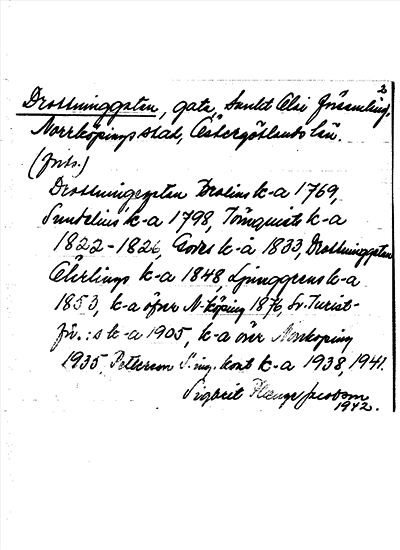 2
Drottninggatan, gata, Sankt Olai församling,
Norrköpings stad, Östergötlands län.
(forts.)
Drottningegatan Brolins k-a 1769,
Sundelius k-a 1798, Törnquists k-a
1822-1826, k-a 1833, Drottninggatan
k-a 1848, Ljunggrens k-a
1853, k-a öfver N-köping 1876, Sv. Turist-
för.:s k-a 1905, k-a över Norrköping
1935, Peterson k-a 1938, 1941.
Sigbrit Plænge Jacobson
1942.